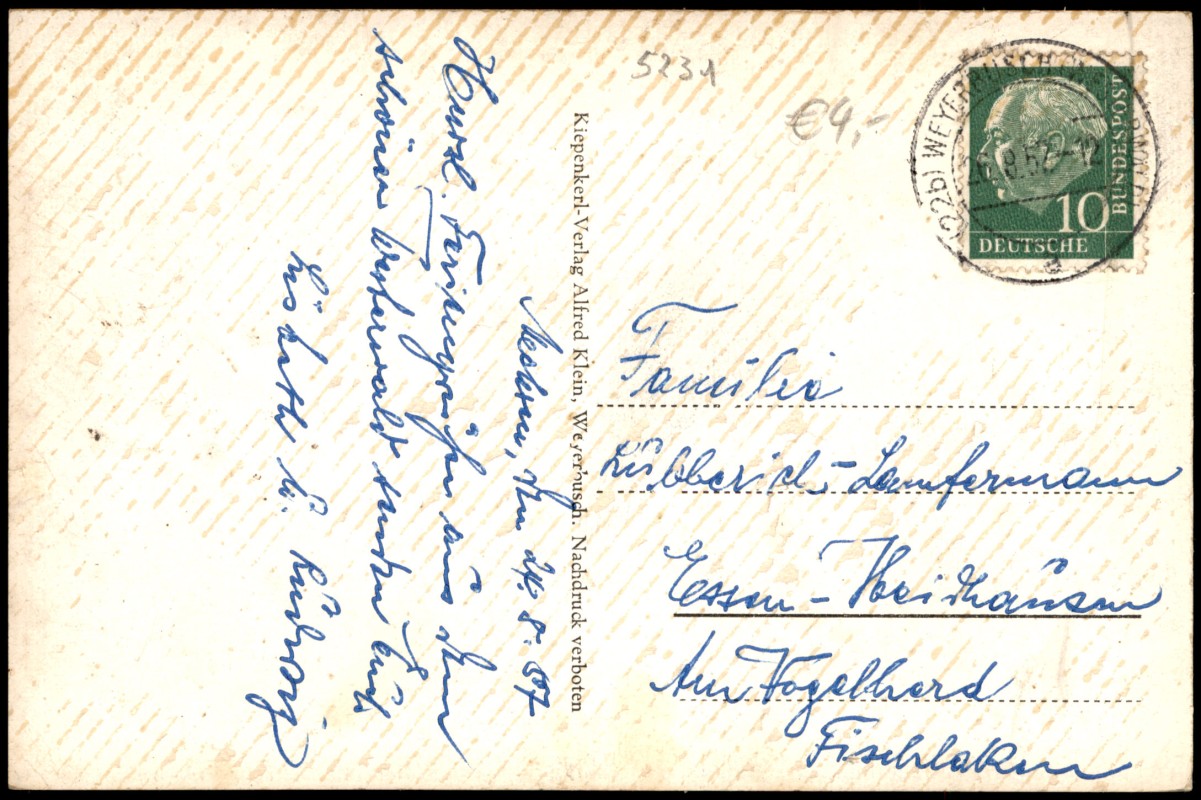 5231
€4,-
(22b) WEYERBUSCH
26.8.57-12
BUNDESPOST
10
DEUTSCHE
Kiepenkerl-Verlag Alfred Klein, Weyerbusch. Nachdruck verboten
den 24. 8. 57.
Herzl. Feriengrüße aus dem
schönen Westerwald senden Euch
Lisbeth u. Ludwig
Familie
Lübberich-Lamfermann
Essen-Heidhausen
Am Vogelherd
Fischlaken